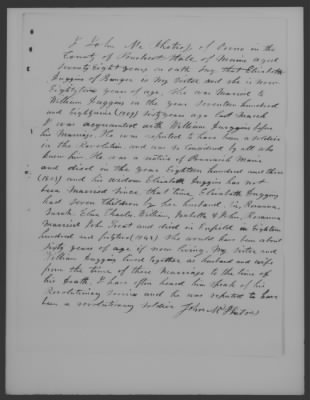 I John Mc Phetres of Orono in the
County of Penobscot State of Maine aged
Seventy Eight years on oath say that Elizabeth
Guggins of Bangor is my sister and she is now
Eighty two years of age. She was married to
William Guggins in the year Seventeen hundred
and Eighty nine (1789) sixty years ago last March
I was acquainted with William Guggins before
his marriage. He was reputed to have been a soldier
in the Revolution and was so considered by all who
knew him. He was a native of Maine
and died in the year Eighteen hundred and three
(1803) and his widow Elizabeth Guggins has not
been married since that time. Elizabeth Guggins
had seven children by her husband, viz, Roxanna,
Sarah, Eliza, Charles, William, Isabella & John. Roxanna
married John Treat and died in Enfield in Eighteen
hundred and . She would have been about
sixty years of age if now living. My sister and
William Guggins lived together as husband and wife
from the time of their marriage to the time of
his death. I have often heard him speak of his
Revolutionary service and he was reputed to have
been a revolutionary soldier John McPhetres